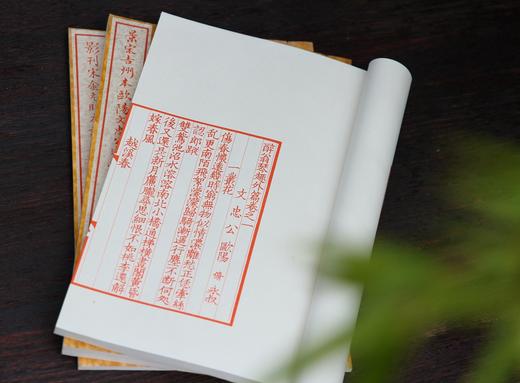 景宋吉州本歐陽文忠
影刊宋金元明本
醉翁琴趣外篇卷之一
文忠公 歐陽 脩 永叔
一叢花
傷春懷遠幾時窮無物似情濃離愁正恁牽絲
亂更南陌飛絮濛濛歸騎漸遙征塵不斷何處
認郎蹤
雙鴛池沼水溶溶南北小橋通梯橫畫閣黃昏
後又還是新月簾櫳尋思細恨不如桃李還解
嫁春風
越溪春